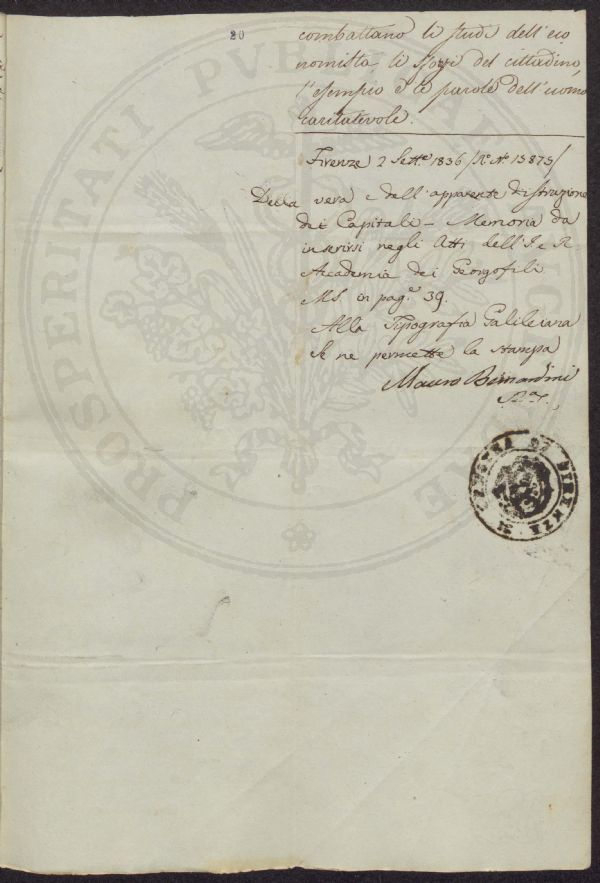 20
combattano li studi dell'eco
nomista, li sforzi del cittadino,
l'esempio e le parole dell'uomo
caritatevole.
Firenze 2 Sett.e 1836 /Rº Nº 13873/
Della vera e dell'apparente distruzione
dei Capitali - Memoria da
inserirsi negli Atti dell'I. e R.
Accademia dei Georgofili
MS. in pag.e 39.
Alla Tipografia Galileiana
Se ne permette la stampa
Mauro Bernardini
CENSURA DI FIRENZE
PROSPERITATI PUBLICAE AUGENDAE